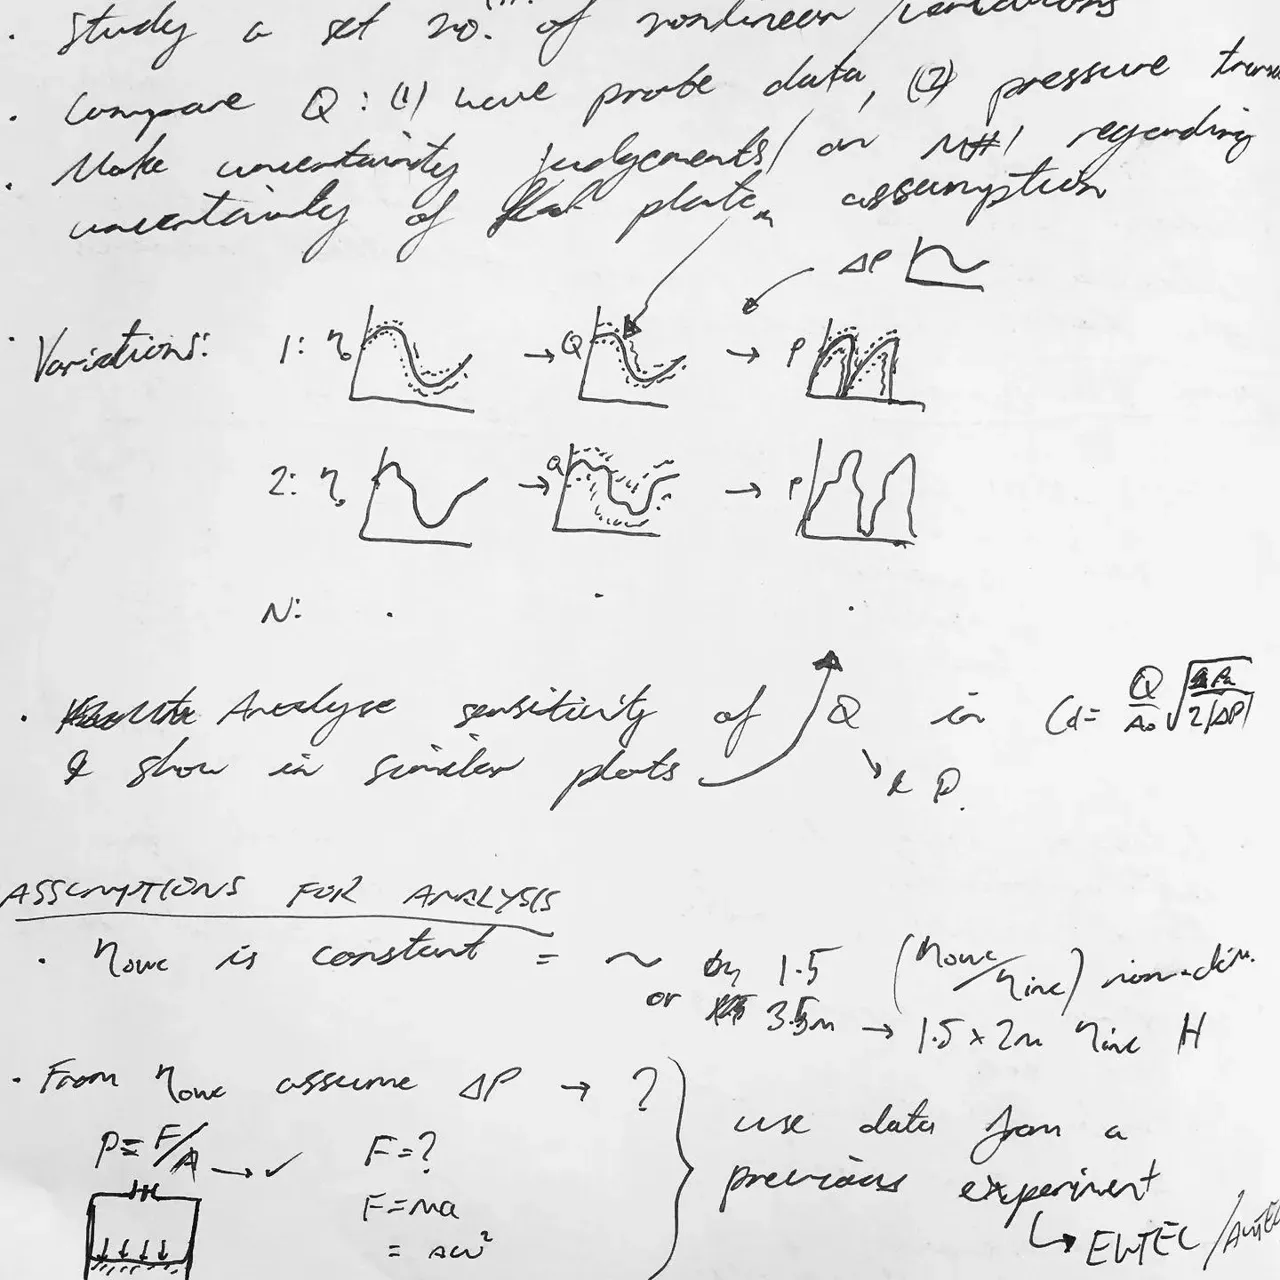 · Study a set no. of nonlinear variations
· Compare Q : (1) wave probe data, (2) pressure trans
· Make uncertainty judgements on M#1 regarding
uncertainty of flat plate assumption
ΔP
· Variations: 1: η → Q → P
2: η → Q → P
N: · · ·
· Analyse sensitivity of Q in Cd = Q/A₀ √(ρₐ/2|ΔP|)
& show in similar plots
& P.
ASSUMPTIONS FOR ANALYSIS
· ηowc is constant = ~ by 1.5 (ηowc/ηinc) non-dim.
or 3.5m → 1.5 × 2m ηinc H
· From ηowc assume ΔP → ?
P = F/A → ✓ F = ?
F = ma
= aω²
use data from a
previous experiment
↳ EWTEC / AWTEC